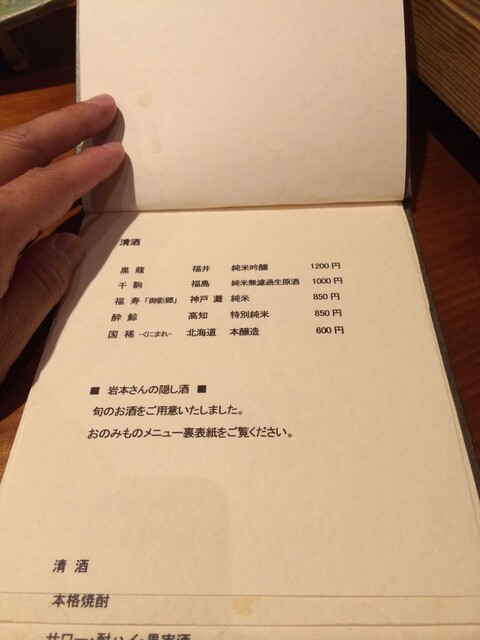 清酒
黒龍 福井 純米吟醸 1200円
千駒 福島 純米無濾過生原酒 1000円
福寿「御影郷」 神戸 灘 純米 850円
酔鯨 高知 特別純米 850円
国稀 -くにまれ- 北海道 本醸造 600円
■ 岩本さんの隠し酒 ■
旬のお酒をご用意いたしました。
おのみものメニュー裏表紙をご覧ください。
清酒
本格焼酎
サワー・酎ハイ・果実酒